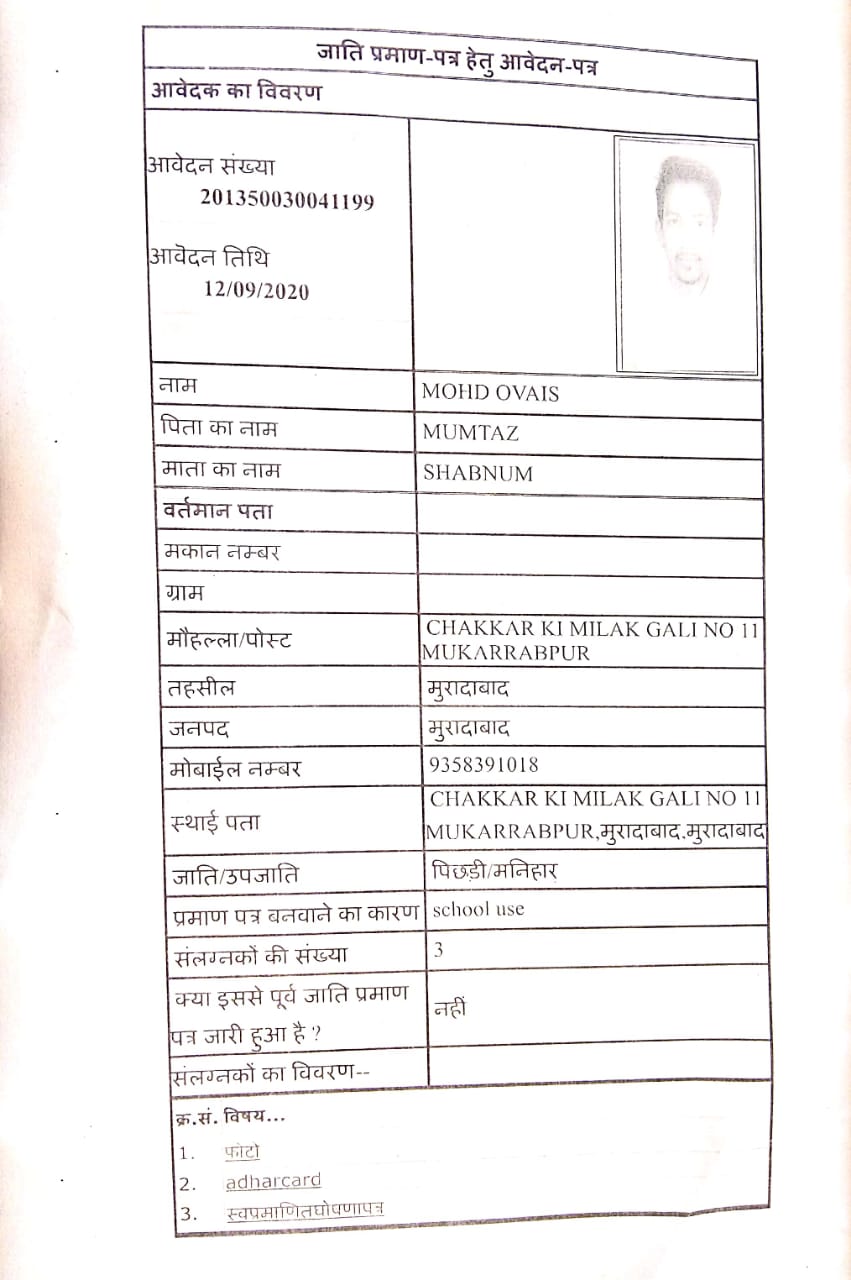 जाति प्रमाण-पत्र हेतु आवेदन-पत्र
आवेदक का विवरण
आवेदन संख्या
201350030041199
आवेदन तिथि
12/09/2020
नाम MOHD OVAIS
पिता का नाम MUMTAZ
माता का नाम SHABNUM
वर्तमान पता
मकान नम्बर
ग्राम
मौहल्ला/पोस्ट CHAKKAR KI MILAK GALI NO 11
MUKARRABPUR
तहसील मुरादाबाद
जनपद मुरादाबाद
मोबाईल नम्बर 9358391018
स्थाई पता CHAKKAR KI MILAK GALI NO 11
MUKARRABPUR,मुरादाबाद,मुरादाबाद
जाति/उपजाति पिछड़ी/मनिहार
प्रमाण पत्र बनवाने का कारण school use
संलग्नकों की संख्या 3
क्या इससे पूर्व जाति प्रमाण
पत्र जारी हुआ है ? नहीं
संलग्नकों का विवरण--
क्र.सं. विषय...
1. फोटो
2. adharcard
3. स्वप्रमाणितघोषणापत्र